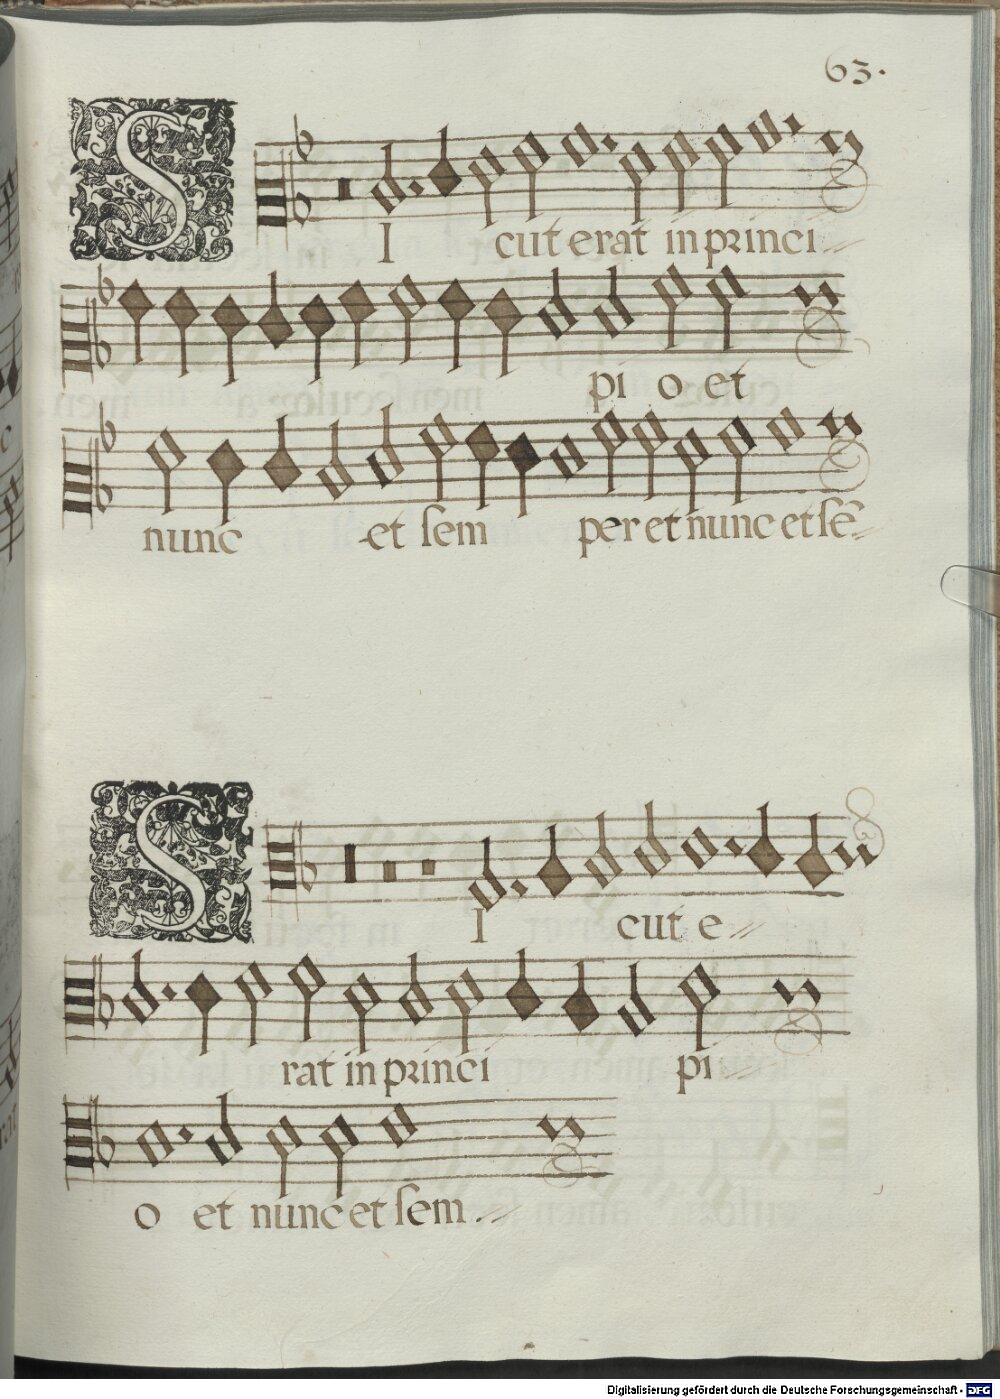 63.
S
I cut erat in princi
pi o et
nunc et sem per et nunc et sē
S
I cut e
rat in princi pi
o et nunc et sem.
Digitalisierung gefördert durch die Deutsche Forschungsgemeinschaft - DFG